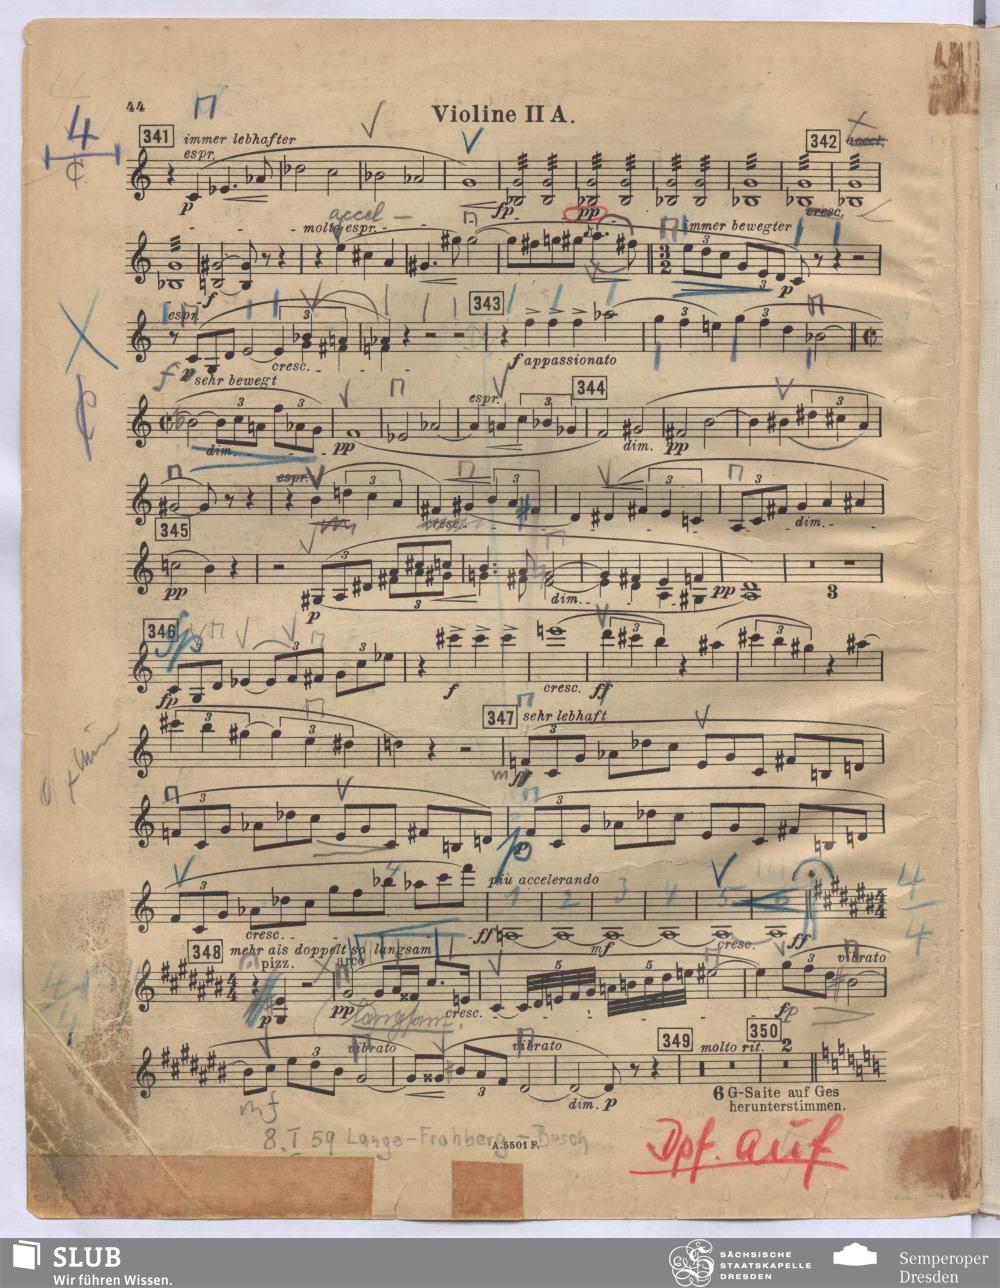 44
Violine II A.
341 immer lebhafter
342 accel.
espr.
p fp pp cresc.
accel
molto espr. immer bewegter
f p
espr. 343
f p cresc. f appassionato
sehr bewegt espr. 344
dim. pp dim. pp
espr.
cresc. dim.
345
pp p dim. pp 3
346 fp
fp f cresc. ff
347 sehr lebhaft
m ff
p
più accelerando
1 2 3 4 5 6
cresc. ff mf cresc. ff
4
4
348 mehr als doppelt so langsam
pizz. arco vibrato
p pp cresc. fp
langsam
vibrato vibrato 349 molto rit. 350 2
mf dim. p
6 G-Saite auf Ges
herunterstimmen.
8. I 59 Lange-Frohberg-Busch
A. 5501 F.
Dpf. auf
SLUB
Wir führen Wissen.
SÄCHSISCHE
STAATSKAPELLE
DRESDEN
Semperoper
Dresden